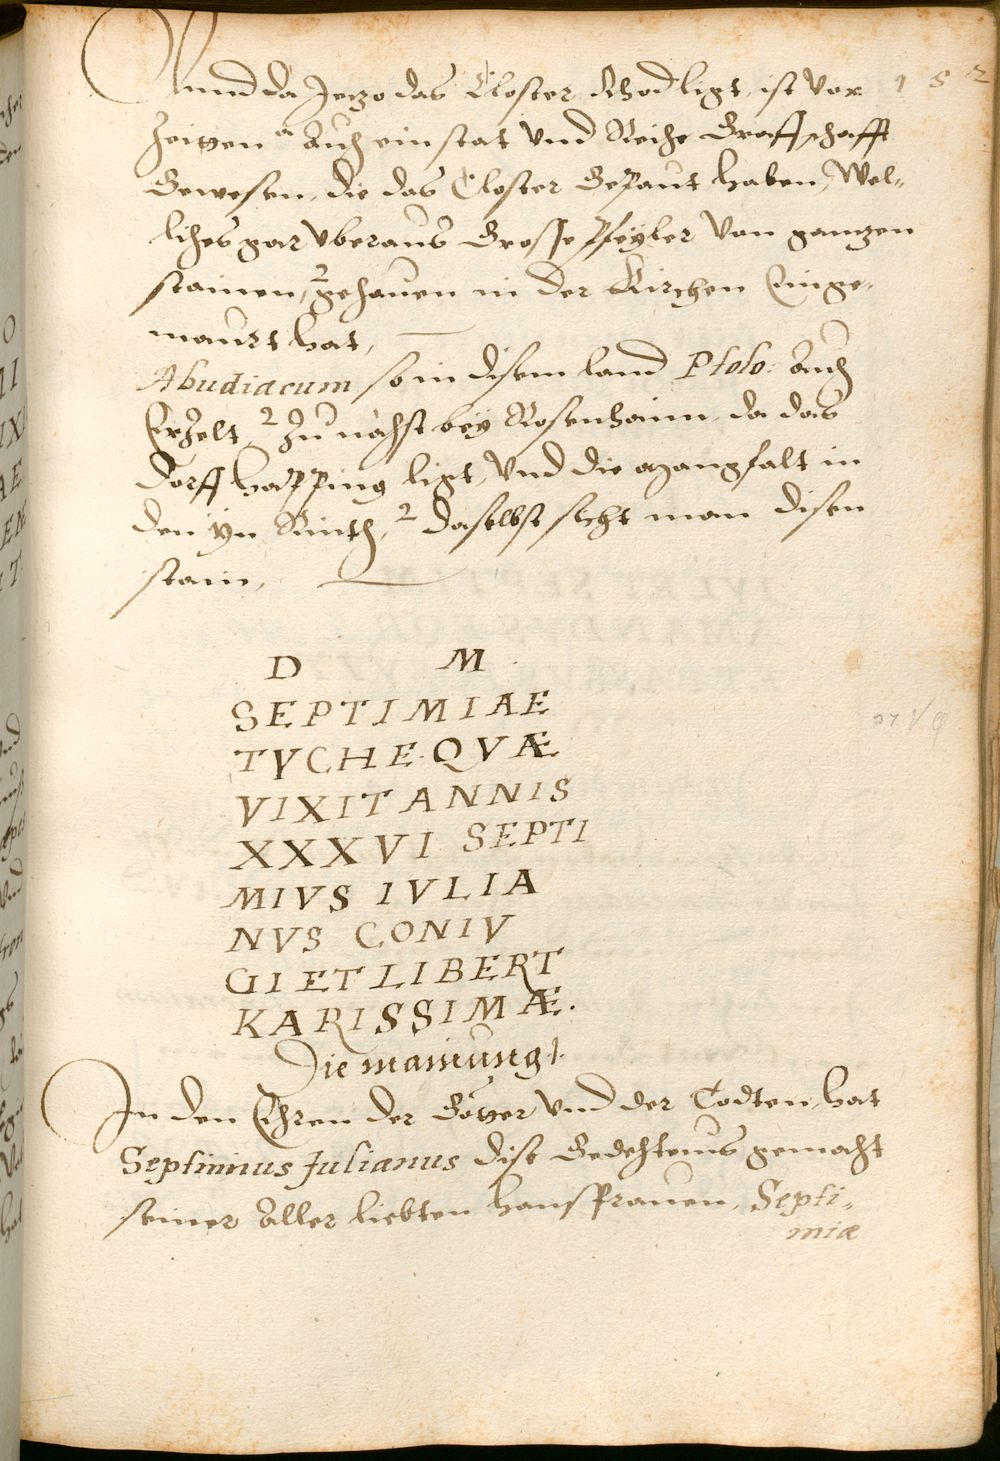 Unnd da Jetzo das Closter Rhod ligt, ist vor 152
Zeitten auch ein stat vnd Reiche Graffschafft
Gewesen, die das Closter Gepaut haben, Wel-
liches gar vberaus Grosse Pfeyler von gantzen
stainen, gehauen in der Kirchen Einge-
maurt hat,
Abudiacum so in disem land Ptolo: auch
Erzelt, zu nachst bey Rosenhaim da das
dorff happing ligt, Vnd die mangfalt in
den yn Rinth, daselbst sicht man disen
stain,
D M
SEPTIMIAE
TYCHE QVÆ
VIXIT ANNIS
XXXVI SEPTI
MIVS IVLIA
NVS CONIV
GI ET LIBERT
KARISSIMÆ.
Die mainung.
In den Ehren der Götter vnd der Todten, hat
Septimius Julianus dise Gedechtnus gemacht
seiner aller liebsten hausfrauen, Septi-
miæ